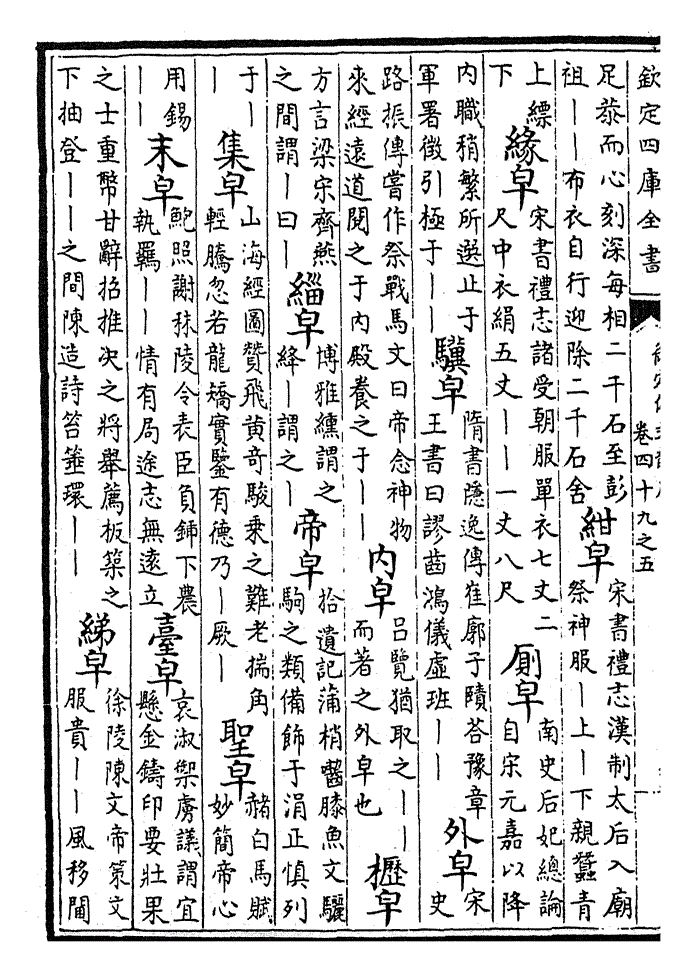 欽定四庫全書
卷四十九之五
足恭而心刻深每相二千石至彭
祖——布衣自行迎除二千石舍
紺皁
宋書禮志漢制太后入廟
祭神服—上—下親蠶青
上縹
下
緣皁
宋書禮志諸受朝服單衣七丈二
尺中衣絹五丈——一丈八尺
廁皁
南史后妃總論
自宋元嘉以降
內職稍繁所選止于
軍署徵引極于——
驥皁
隋書隱逸傳崔廓子賾荅豫章
王書曰謬齒鴻儀虛班——
外皁
宋
史
路振傳嘗作祭戰馬文曰帝念神物
來經遠道閱之于內殿養之于——
內皁
呂覽猶取之——
而著之外皁也
櫪皁
方言梁宋齊燕
之間謂—曰—
緇皁
博雅纁謂之
絳—謂之—
帝皁
拾遺記蒲梢齧膝魚文驪
駒之類備飾于涓正慎列
于—
—
集皁
山海經圖贊飛黃奇駿乘之難老揣角
輕騰忽若龍矯實鑒有德乃—厥—
聖皁
赭白馬賦
妙簡帝心
用錫
——
末皁
鮑照謝秣陵令表臣負鍤下農
執羈——情有局途志無遠立
臺皁
袁淑禦虜議謂宜
懸金鑄印要壯果
之士重幣甘辭招推决之將舉薦板築之
下抽登——之間陳造詩笞箠環——
綈皁
徐陵陳文帝策文
服貴——風移閫